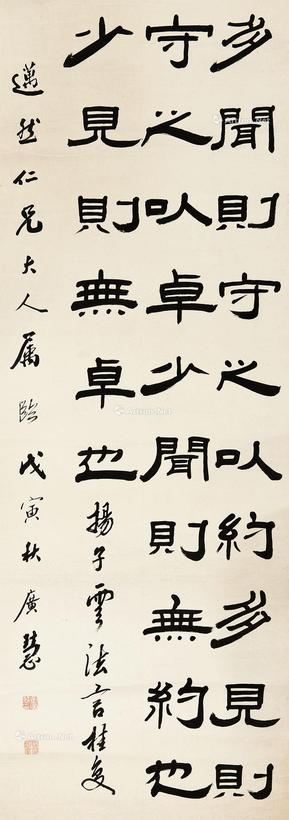 多聞則守之以約多見則
守之以卓少聞則無約也
少見則無卓也揚子雲法言桂复
邁然仁兄大人属臨戊寅秋廣慧